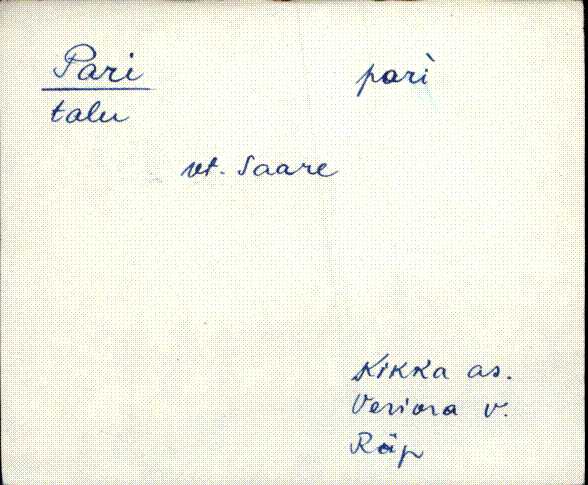 Pari parì
talu
vt. Saare
Kikka as.
Veriora v.
Räp